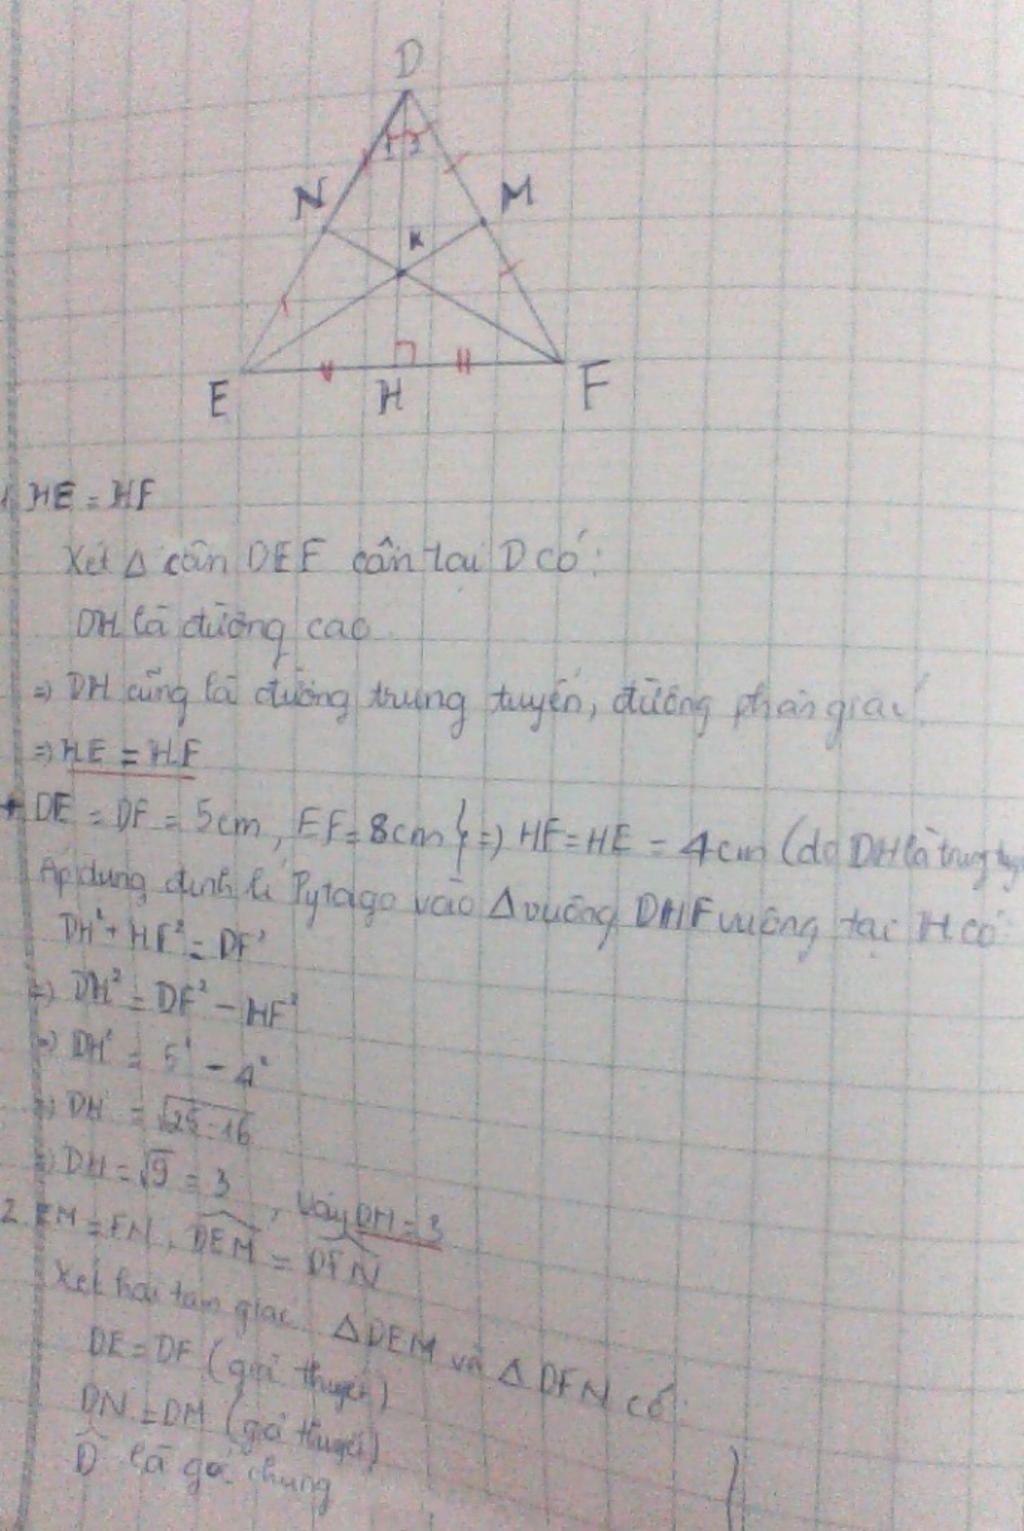 D
1 2
N
M
K
E
H
F
1. HE = HF
Xét Δ cân DEF cân tại D có:
DH là đường cao
=> DH cũng là đường trung tuyến, đường phân giác
=> HE = HF
+ DE = DF = 5cm, EF = 8cm } => HF = HE = 4cm (do DH là trung
Áp dụng định lí Pytago vào Δ vuông DHF vuông tại H có
DH² + HF² = DF²
=> DH² = DF² - HF²
=> DH² = 5² - 4²
=> DH = √25-16
=> DH = √9 = 3, Vậy DH = 3
2. EM = FN, DEM = DFN
Xét hai tam giác ΔDEM và ΔDFN có:
DE = DF (giả thuyết)
DN = DM (giả thuyết)
D là góc chung